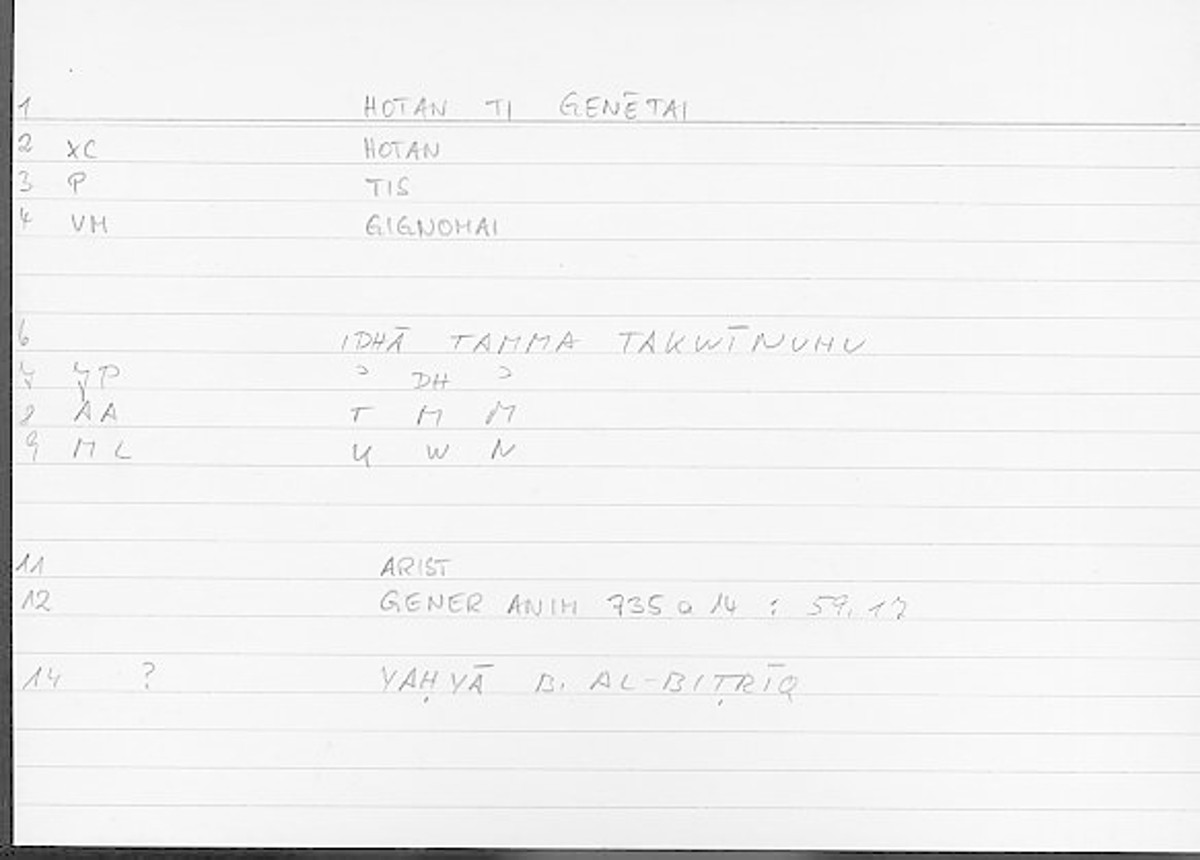 1 HOTAN TI GENĒTAI
2 XC HOTAN
3 P TIS
4 VM GIGNOMAI
6 IDHĀ TAMMA TAKWĪNUHU
7 YP ʾ DH ʾ
8 AA T M M
9 ML K W N
11 ARIST
12 GENER ANIM 735 a 14 : 59, 17
14 ? YAḤYĀ B. AL-BIṬRĪQ